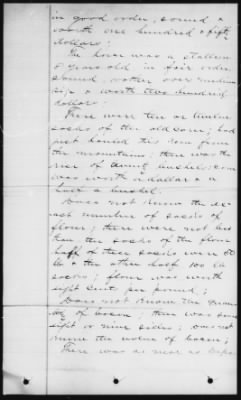 in good order, sound &
worth one hundred & fifty
dollars;
The horse was a stallion
8 years old in fair order
sound, rather over medium
size & worth two hundred
dollars;
There were ten or twelve
sacks of the old corn; had
just hauled this corn from
the mountains; there was the
rise of twenty bushels; corn
was worth a dollar & a
half a bushel.
Does not know the ex-
act number of sacks of
flour; there were not less
than ten sacks of the flour
half of these sacks were 50
lb & the other half 100 lb
sacks; flour was worth
eight cents per pound;
Does not know the quan-
tity of bacon; there was some
eight or nine sides; does not
know the value of bacon;
There was as near as